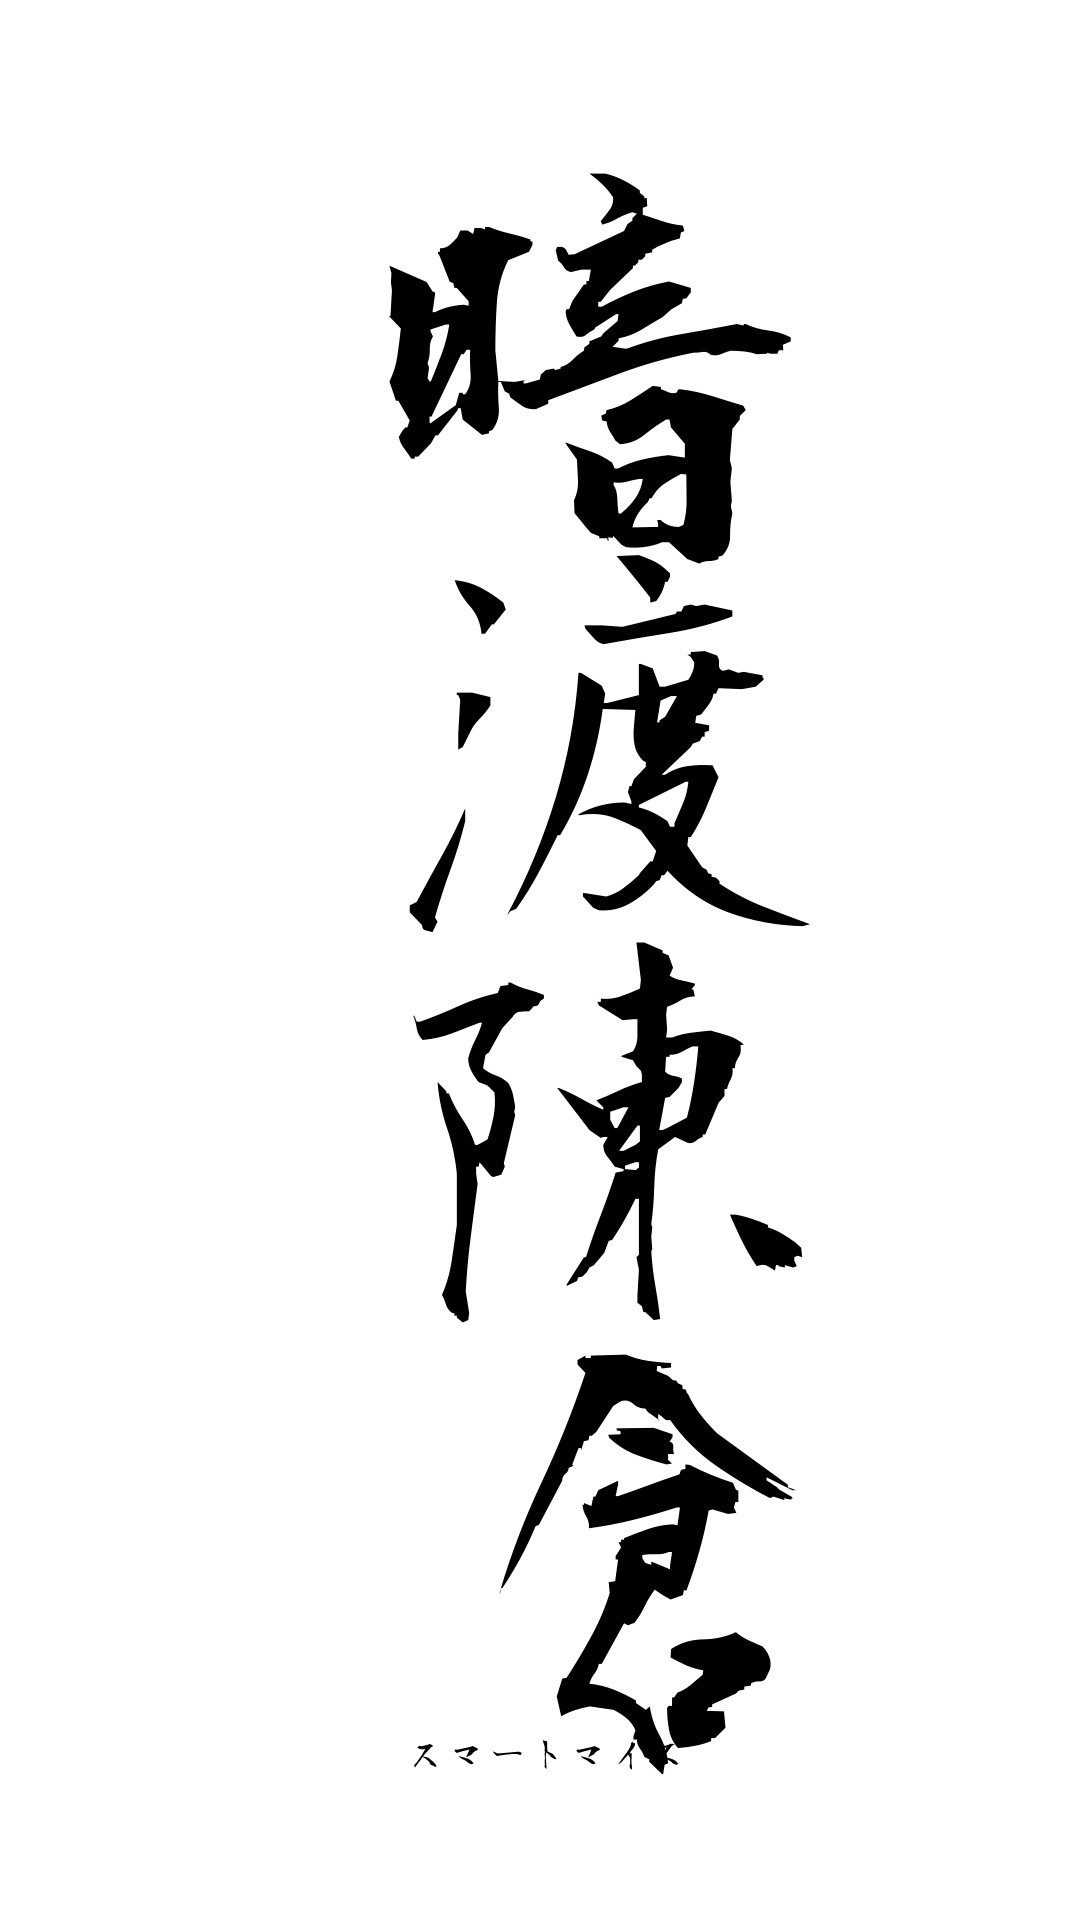 暗渡陳倉
スマートマイル